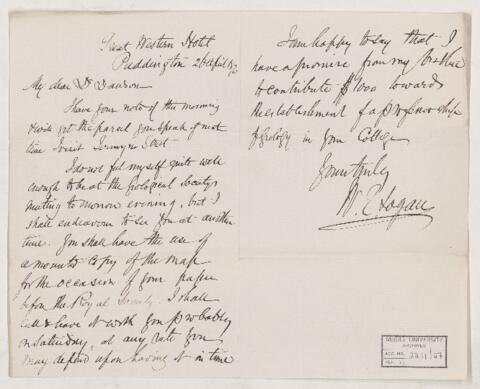 Great Western Hotel
Paddington 26 April
My dear Dr Dawson
Have your note of this morning
& will get the parcel you speak of next
time I visit Jermyn Street
I do not feel myself quite well
enough to be at the Geological Society's
meeting to morrow evening, but I
shall endeavour to see you at another
time. You shall have the use of
a mounted copy of the map
for the occasion of your paper
before the Royal Society. I shall
call & leave it with you probably
on Saturday, at any rate you
may depend upon having it in time
I am happy to say that I
have a promise from my brother
to contribute $1000 towards
the establishment of a professorship
of Geology in your College
Yours truly
W. E. Logan
McGILL UNIVERSITY
ARCHIVES
ACC. NO. 2211/67
REF.